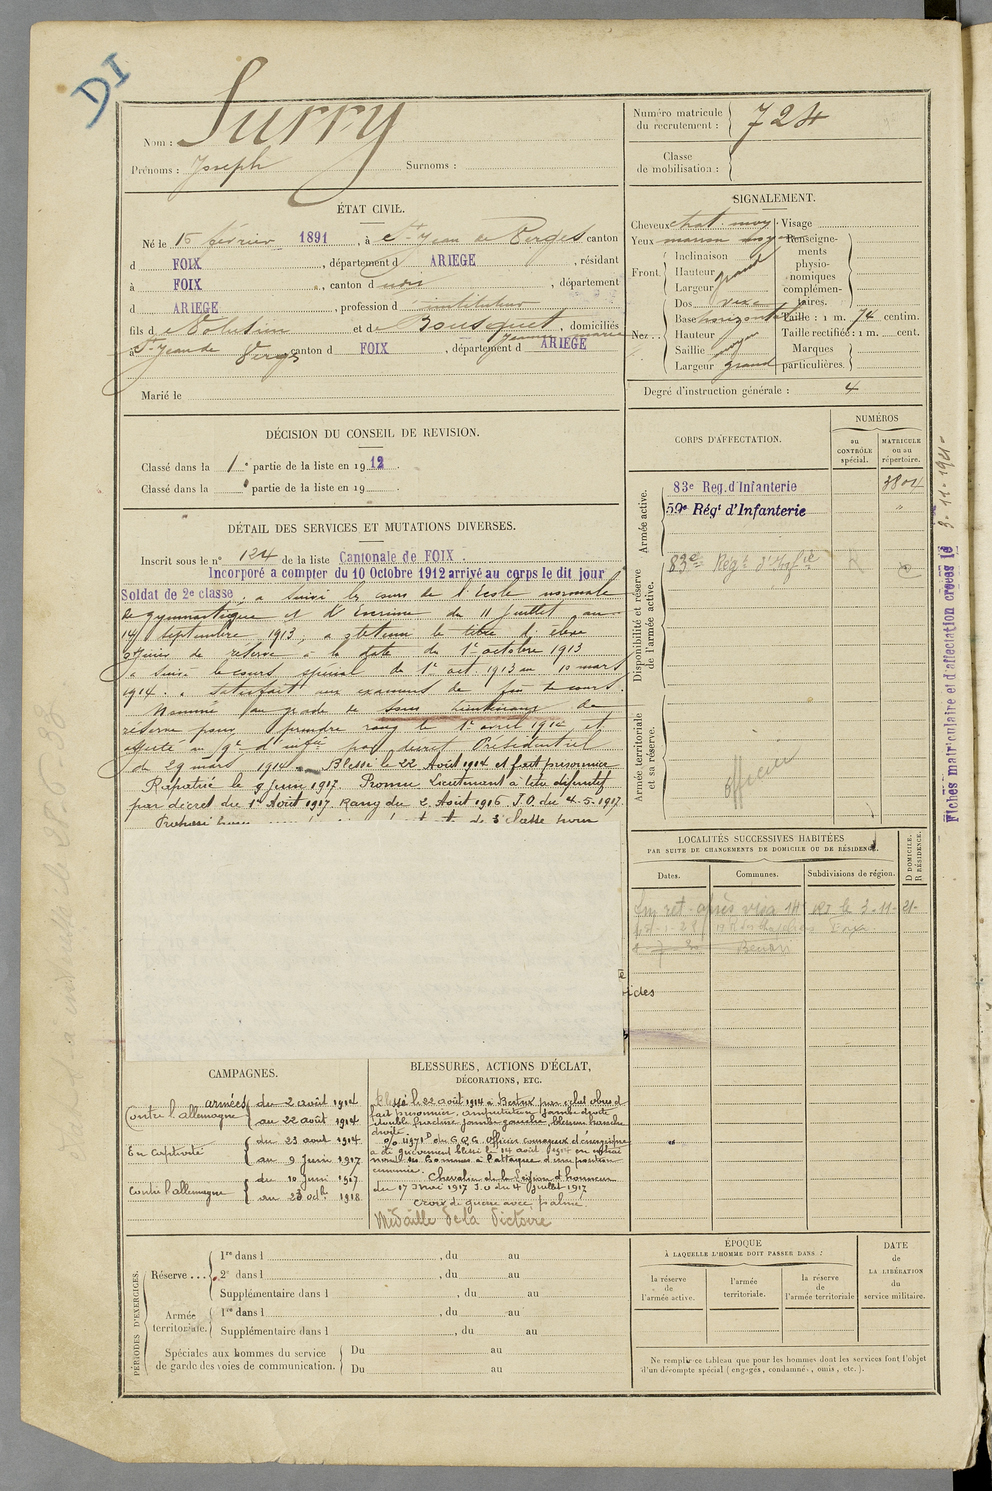 DI
Nom : Surry
Prénoms : Joseph Surnoms :
Numéro matricule du recrutement : 724
Classe de mobilisation :
ÉTAT CIVIL.
Né le 15 février 1891, à St Jean de Verges canton
d FOIX, département d ARIEGE, résidant
à FOIX, canton d udit, département
d ARIEGE, profession d instituteur
fils de Volusien et de Bousquet Jeanne Marie, domiciliés
à St Jean de Verges canton d FOIX, département d ARIEGE
Marié le
SIGNALEMENT.
Cheveux chat. moy. Visage
Yeux marron moyen
Renseignements physionomiques complémentaires.
Front. Inclinaison
Hauteur grand
Largeur
Nez. Dos vexe
Base horizontal
Hauteur
Saillie moyen
Largeur grand
Taille : 1 m. 74 centim.
Taille rectifiée : 1 m. cent.
Marques particulières.
Degré d'instruction générale : 4
DÉCISION DU CONSEIL DE REVISION.
Classé dans la 1e partie de la liste en 1912.
Classé dans la e partie de la liste en 19
DÉTAIL DES SERVICES ET MUTATIONS DIVERSES.
Inscrit sous le n° 124 de la liste Cantonale de FOIX.
Incorporé a compter du 10 Octobre 1912 arrivé au corps le dit jour
Soldat de 2e classe, a suivi les cours de l'Ecole normale
de gymnastique et d'Escrime du 11 Juillet au
14 septembre 1913, a obtenu le titre d'élève
officier de réserve à la date du 1er octobre 1913
a suivi le cours spécial du 1er oct. 1913 au 10 mars
1914. a satisfait aux examens de fin de cours.
Nommé au grade de sous lieutenant de
réserve pour prendre rang le 1er avril 1914 et
affecté au 9e d'infie par décret Présidentiel
du 29 mars 1914. Blessé le 22 Août 1914 et fait prisonnier
Rapatrié le 9 Juin 1917. Promu Lieutenant à titre définitif
par décret du 1er Août 1917. Rang du 2 Août 1916. J.O. du 4-5-1917.
de 3e classe pour
CORPS D'AFFECTATION.
NUMÉROS
au CONTRÔLE spécial.
MATRICULE ou au répertoire.
Armée active.
83e Reg. d'Infanterie 3804
59e Régt d'Infanterie "
Disponibilité et réserve de l'armée active.
83e Régt d'Infie
Armée territoriale et sa réserve.
officier
Fiches matriculaire et d'affectation créées le 3-11-1921-
LOCALITÉS SUCCESSIVES HABITÉES
PAR SUITE DE CHANGEMENTS DE DOMICILE OU DE RÉSIDENCE.
Dates.
Communes.
Subdivisions de région.
D DOMICILE. R RÉSIDENCE.
le 3-11-21-
Foix.
ides
CAMPAGNES.
Contre l'allemagne armées du 2 août 1914
au 22 août 1914
En Captivité du 23 août 1914.
au 9 Juin 1917.
Contre l'allemagne du 10 Juin 1917.
au 23 oct. 1918.
BLESSURES, ACTIONS D'ÉCLAT,
DÉCORATIONS, ETC.
Blessé le 22 août 1914 à Bertrix par éclat obus et
fait prisonnier. amputation jambe droite
double fracture jambe gauche, blessure hanche
droite.
du G.Q.G. Officier courageux et énergique
a été grièvement blessé le 14 août 1914 en
ses hommes à l'attaque d'une position
ennemie.
Chevalier de la Légion d'honneur
du 17 Mai 1917 J.O du 4 Juillet 1917
croix de guerre avec palme.
Médaille de la Victoire
PÉRIODES D'EXERCICES.
Réserve... 1re dans l , du au
2e dans l , du au
Supplémentaire dans l , du au
Armée territoriale. 1re dans l , du au
Supplémentaire dans l , du au
Spéciales aux hommes du service de garde des voies de communication. Du au
Du au
ÉPOQUE
À LAQUELLE L'HOMME DOIT PASSER DANS :
la réserve de l'armée active.
l'armée territoriale.
la réserve de l'armée territoriale
DATE de LA LIBÉRATION du service militaire.
Ne remplir ce tableau que pour les hommes dont les services font l'objet
d'un décompte spécial (engagés, condamnés, omis, etc.).